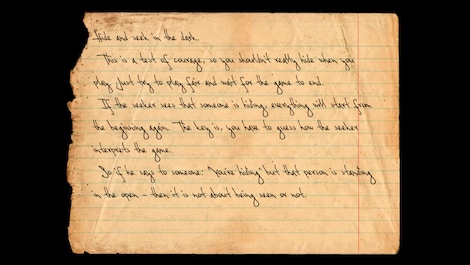 Hide and seek in the dark.
This is a test of courage, so you shouldn't really hide when you
play. Just try to play fair and wait for the game to end.
If the seeker sees that someone is hiding, everything will start from
the beginning again. The key is, you have to guess how the seeker
interprets the game.
So if he says to someone: "You're hiding" but that person is standing
in the open - then it is not about being seen or not.